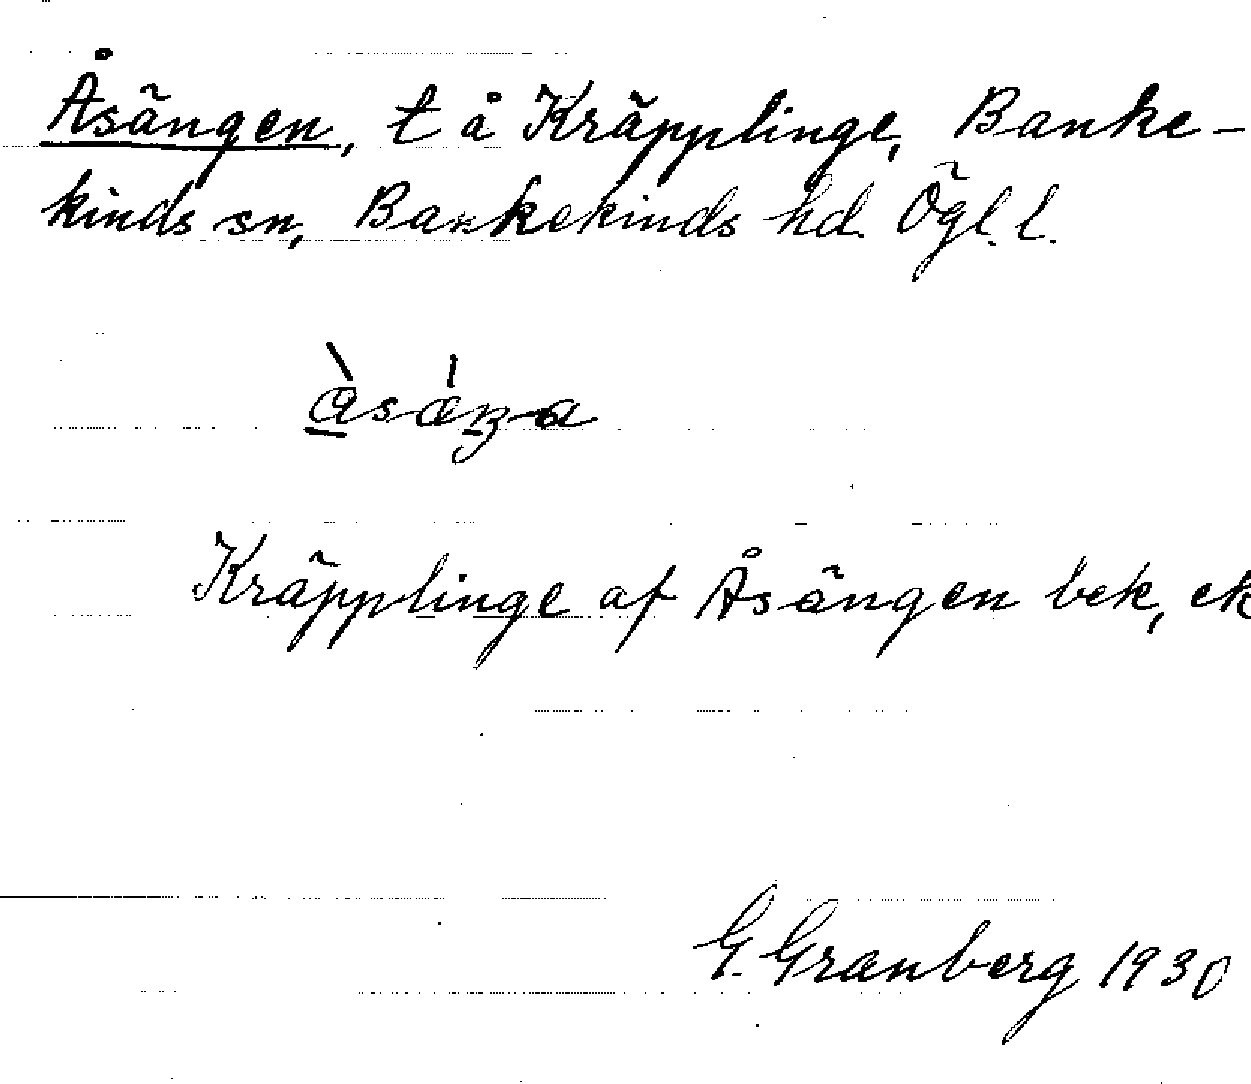 Åsängen, t å Kräpplinge, Banke-
kinds sn, Bankekinds hd. Ögl. l.
Kräpplinge af Åsängen bek, ek
G. Granberg 1930